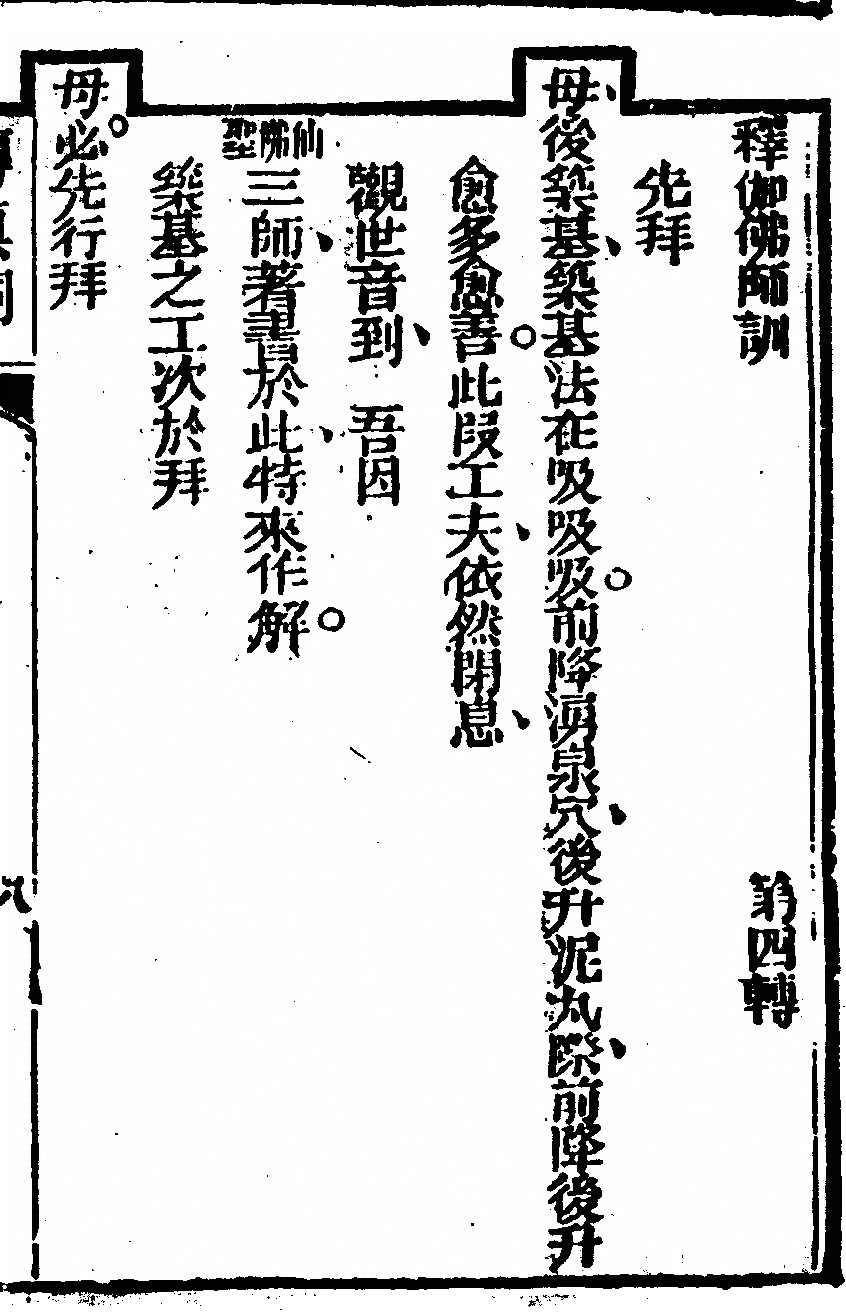 釋伽佛師訓　第四轉
先拜
母、後築基、築基築基法在吸吸吸○前降湧泉穴、後升泥丸際、前降後升
愈多愈善○此段工夫、依然閑息、
觀世音到、　吾因
仙佛聖三師、著書於此、特來作解○
築基之工次於拜
母必○先行拜
八